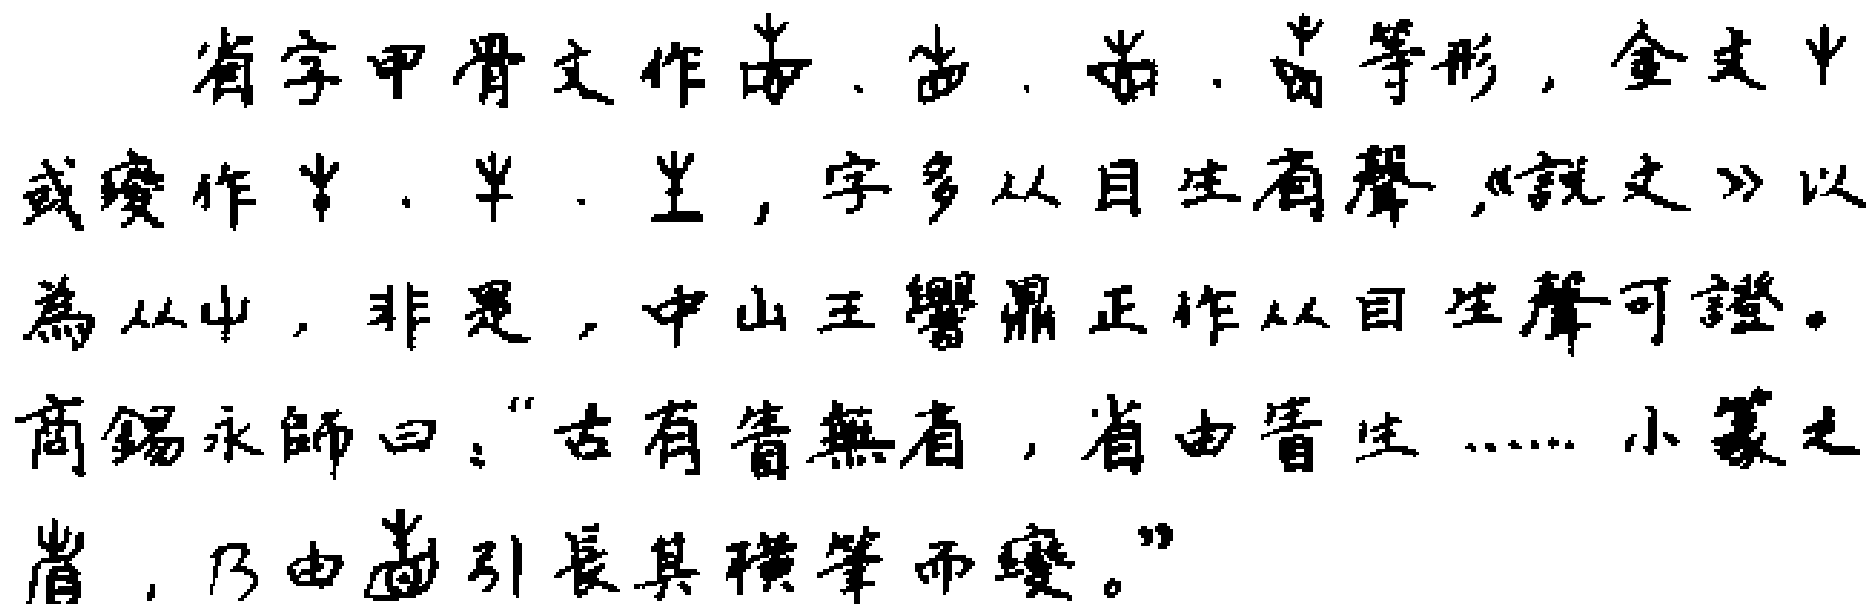 省字甲骨文作、、、等形，金文屮
或變作、、，字多从目生省聲，《說文》以
為从屮，非是，中山王鼎正作从目生聲可證。
商錫永師曰：“古有眚無省，省由眚生……小篆之
，乃由引長其橫筆而變。”